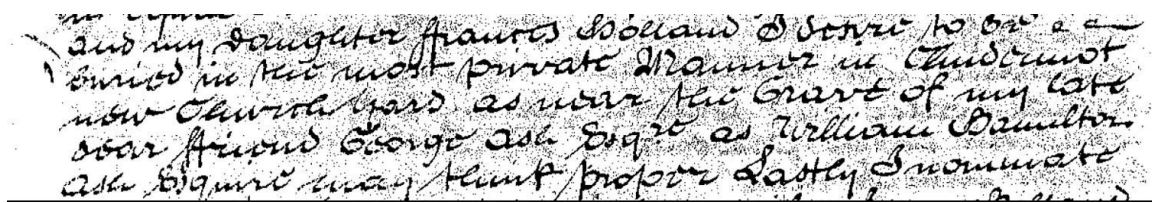 and my daughter Frances Holland I desire to be
buried in the most private Manner in Cludermot
new Church Yard as near the Grave of my late
dear ffriend George Ash Esqre. as William Hamilton
Ash Esquire may think proper Lastly I nominate